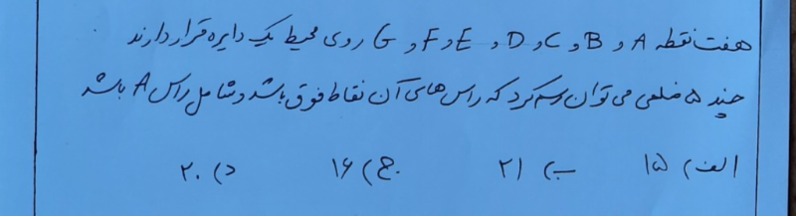 هفت نقطه A و B و C و D و E و F و G روی محیط یک دایره قرار دارند
چند ۵ ضلعی می توان رسم کرد که راس های آن نقاط فوق باشد و شامل راس A باشد
الف) ۱۵ ب) ۲۱ ج) ۱۶ د) ۲۰